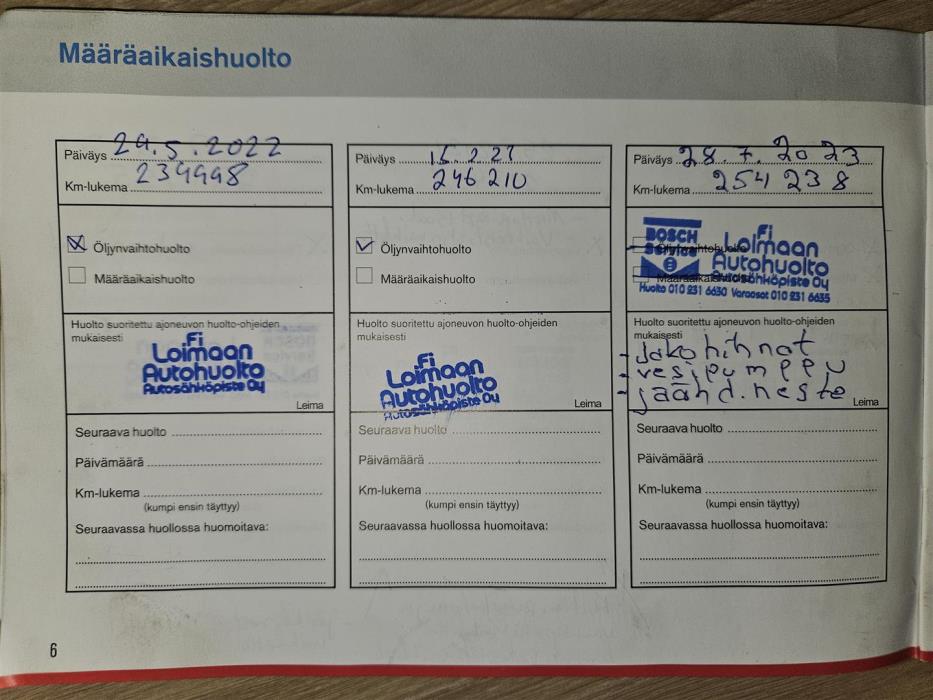 Määräaikaishuolto
Päiväys 29.5.2022
Km-lukema 239998
Öljynvaihtohuolto
Määräaikaishuolto
Huolto suoritettu ajoneuvon huolto-ohjeiden
mukaisesti
Fi
Loimaan
Autohuolto
Autosähköpiste Oy
Leima
Seuraava huolto
Päivämäärä
Km-lukema
(kumpi ensin täyttyy)
Seuraavassa huollossa huomoitava:
Päiväys
Km-lukema 246 210
Öljynvaihtohuolto
Määräaikaishuolto
Huolto suoritettu ajoneuvon huolto-ohjeiden
mukaisesti
Fi
Loimaan
Autohuolto
Autosähköpiste Oy
Leima
Seuraava huolto
Päivämäärä
Km-lukema
(kumpi ensin täyttyy)
Seuraavassa huollossa huomoitava:
Päiväys 28.7.2023
Km-lukema 254 238
Öljynvaihtohuolto
Määräaikaishuolto
BOSCH
Service
Fi
Loimaan
Autohuolto
Autosähköpiste Oy
Huolto 010 231 6630 Varaosat 010 231 6635
Huolto suoritettu ajoneuvon huolto-ohjeiden
mukaisesti
- jakohihnat
- vesipumppu
- jäähd.neste
Leima
Seuraava huolto
Päivämäärä
Km-lukema
(kumpi ensin täyttyy)
Seuraavassa huollossa huomoitava:
6